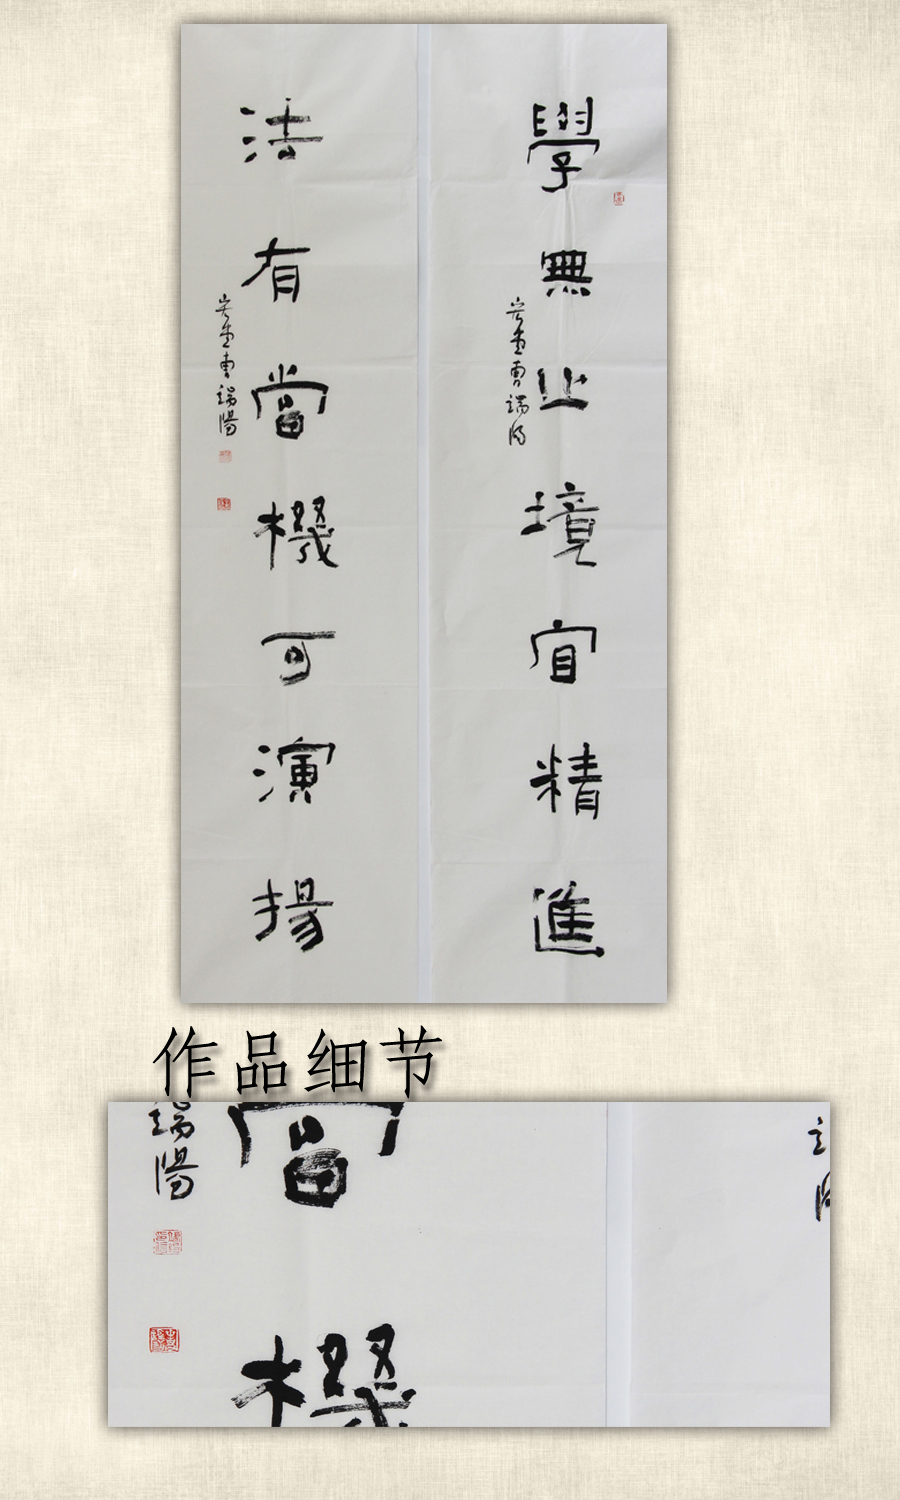 學無止境宜精進
法有當機可演揚
曹端陽
作品细节
端陽
當
機